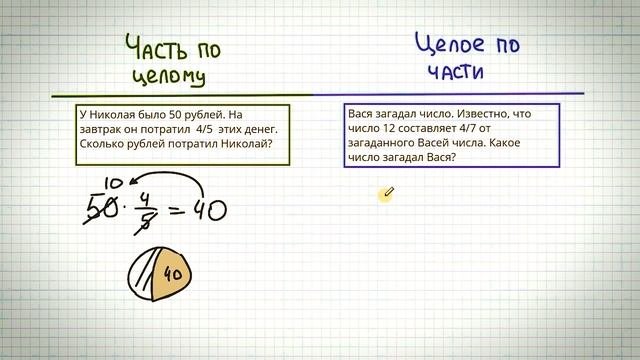 Часть по
целому
Целое по
части
У Николая было 50 рублей. На
завтрак он потратил 4/5 этих денег.
Сколько рублей потратил Николай?
Вася загадал число. Известно, что
число 12 составляет 4/7 от
загаданного Васей числа. Какое
число загадал Вася?
10
50 · 4/5 = 40
40